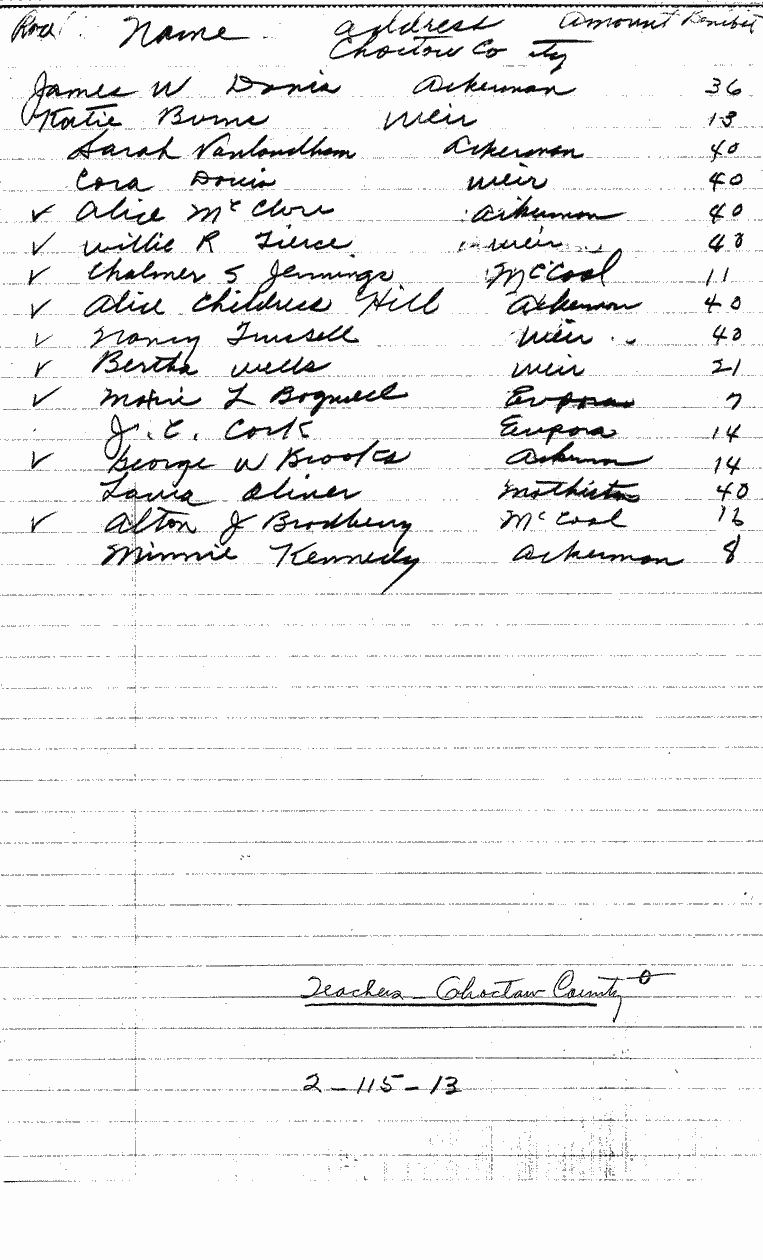 Name Address Amount
Choctaw Co ty
James W Davis Ackerman 36
Katie Burns Weir 13
Sarah Vanlandham Ackerman 40
Cora Davis Weir 40
✓ Alice McClure Ackerman 40
✓ Willie R Tierce Weir 40
✓ Chalmer S Jennings McCool 11
✓ Alice Childress Hill Ackerman 40
✓ Nancy Trussell Weir 40
✓ Bertha Wells Weir 21
✓ Marie L Bagwell Eupora 7
J. C. Cork Eupora 14
✓ George W Brooks Ackerman 14
Oliver Mathiston 40
✓ Alton J Bradberry McCool 16
Minnie Kennedy Ackerman 8
Teachers - Choctaw County
2-115-13